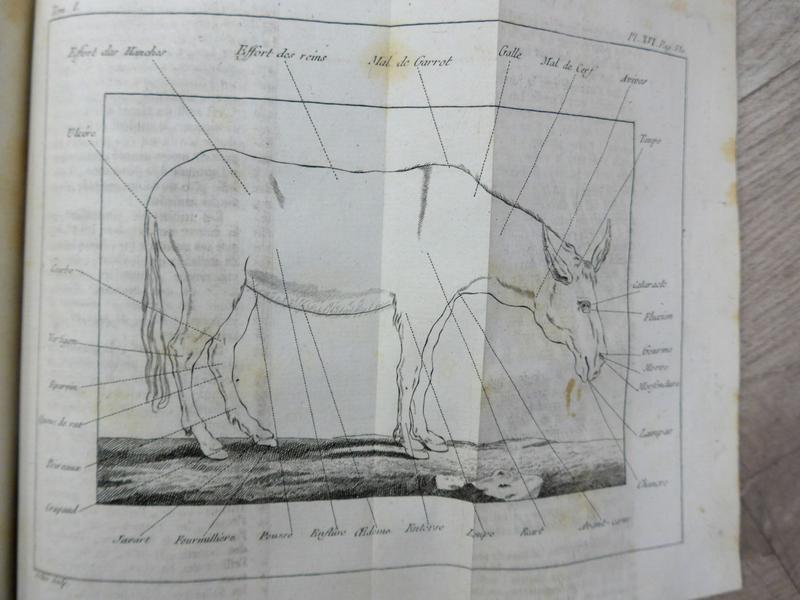 Tom. I.
Pl. XVI. Pag.
Effort des Hanches
Effort des reins
Mal de Garrot
Galle
Mal de Cerf
Avives
Ulcére
Taupe
Courbe
Cataracte
Fluxion
Vertigon
Gourme
Morve
Morfondure
Eparvin
Queue de rat
Lampas
Poireaux
Chancre
Crapaud
Javart
Fourmilliere
Pousse
Enflûre
Œdeme
Entorse
Loupe
Avant-cœur
sculp.